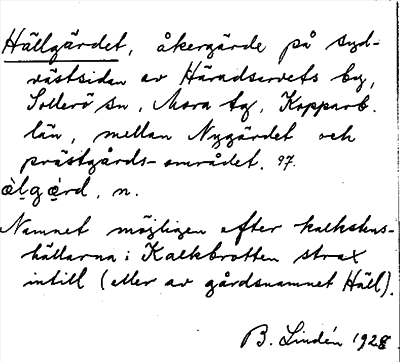 Hällgärdet, åkergärde på syd-
västsidan av Häradsarvets by,
Sollerö sn, Mora tg, Kopparb.
län, mellan Nygärdet och
prästgårds-området. 97.
n.
Namnet möjligen efter kalkstens-
hällarna i Kalkbrotten strax
intill (eller av gårdsnamnet Häll).
B. Lindén 1928